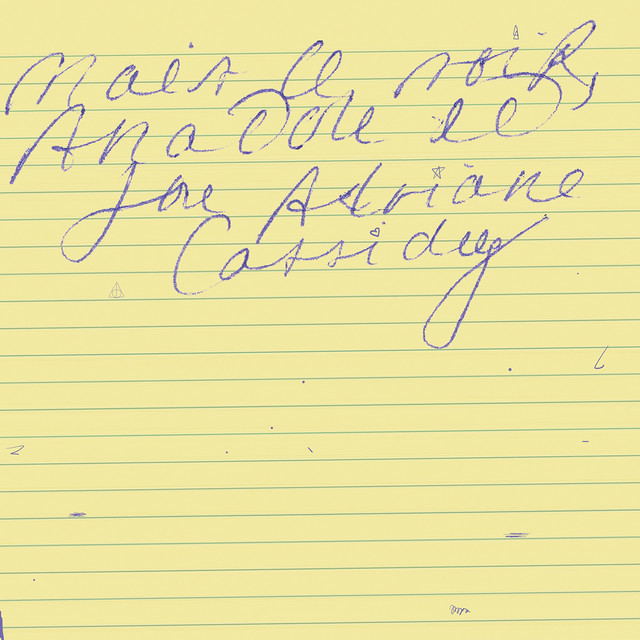 Mais le soir,
AnaDole
Joe Adriane
Cassidey